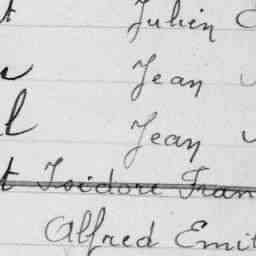 t Julien
Jean
l Jean
t Isidore Fran
Alfred Emil